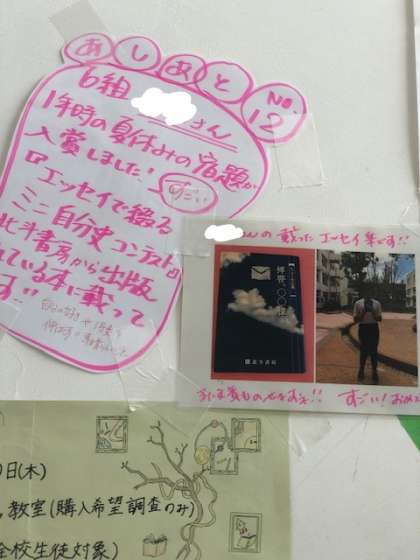 あしあと No.12
6組 さん
1年時の夏休みの宿題が
入賞しました! すごい
『エッセイで綴る
ミニ自分史コンテスト』
北斗書房から出版
ている本に載って
す!!
の載ったエッセイ集です!!
拝啓、〇〇様
北斗書房
すごい! おめ
日(木)
教室(購入希望調査のみ)
全校生徒対象)